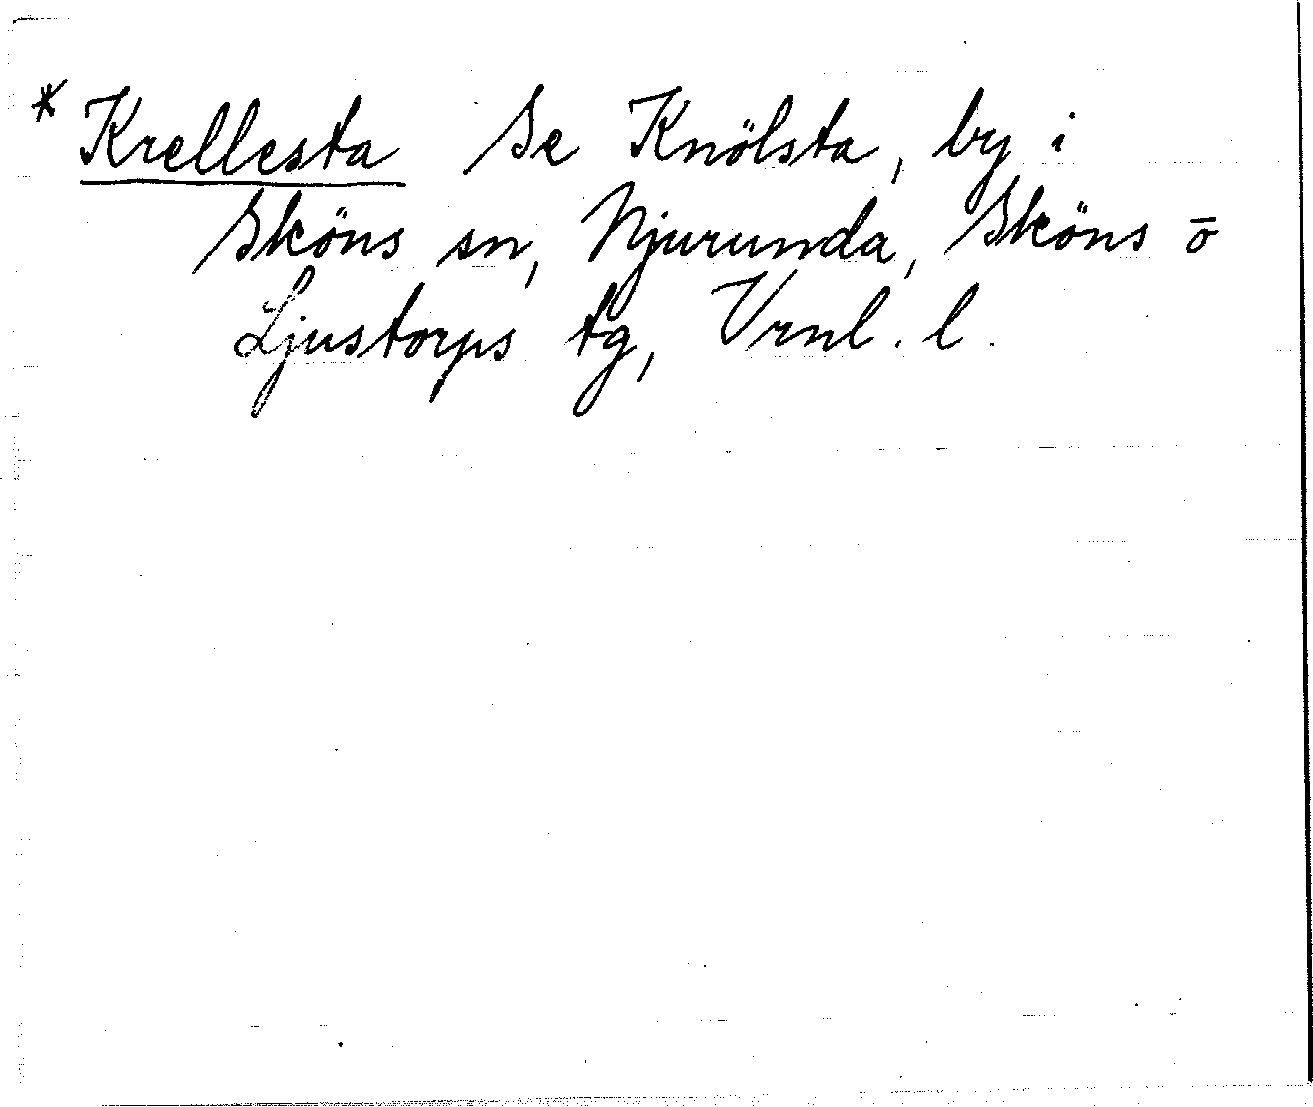 * Krellesta Se Knölsta, by i
Sköns sn, Njurunda, Sköns o
Ljustorps tg, Vrnl. l.